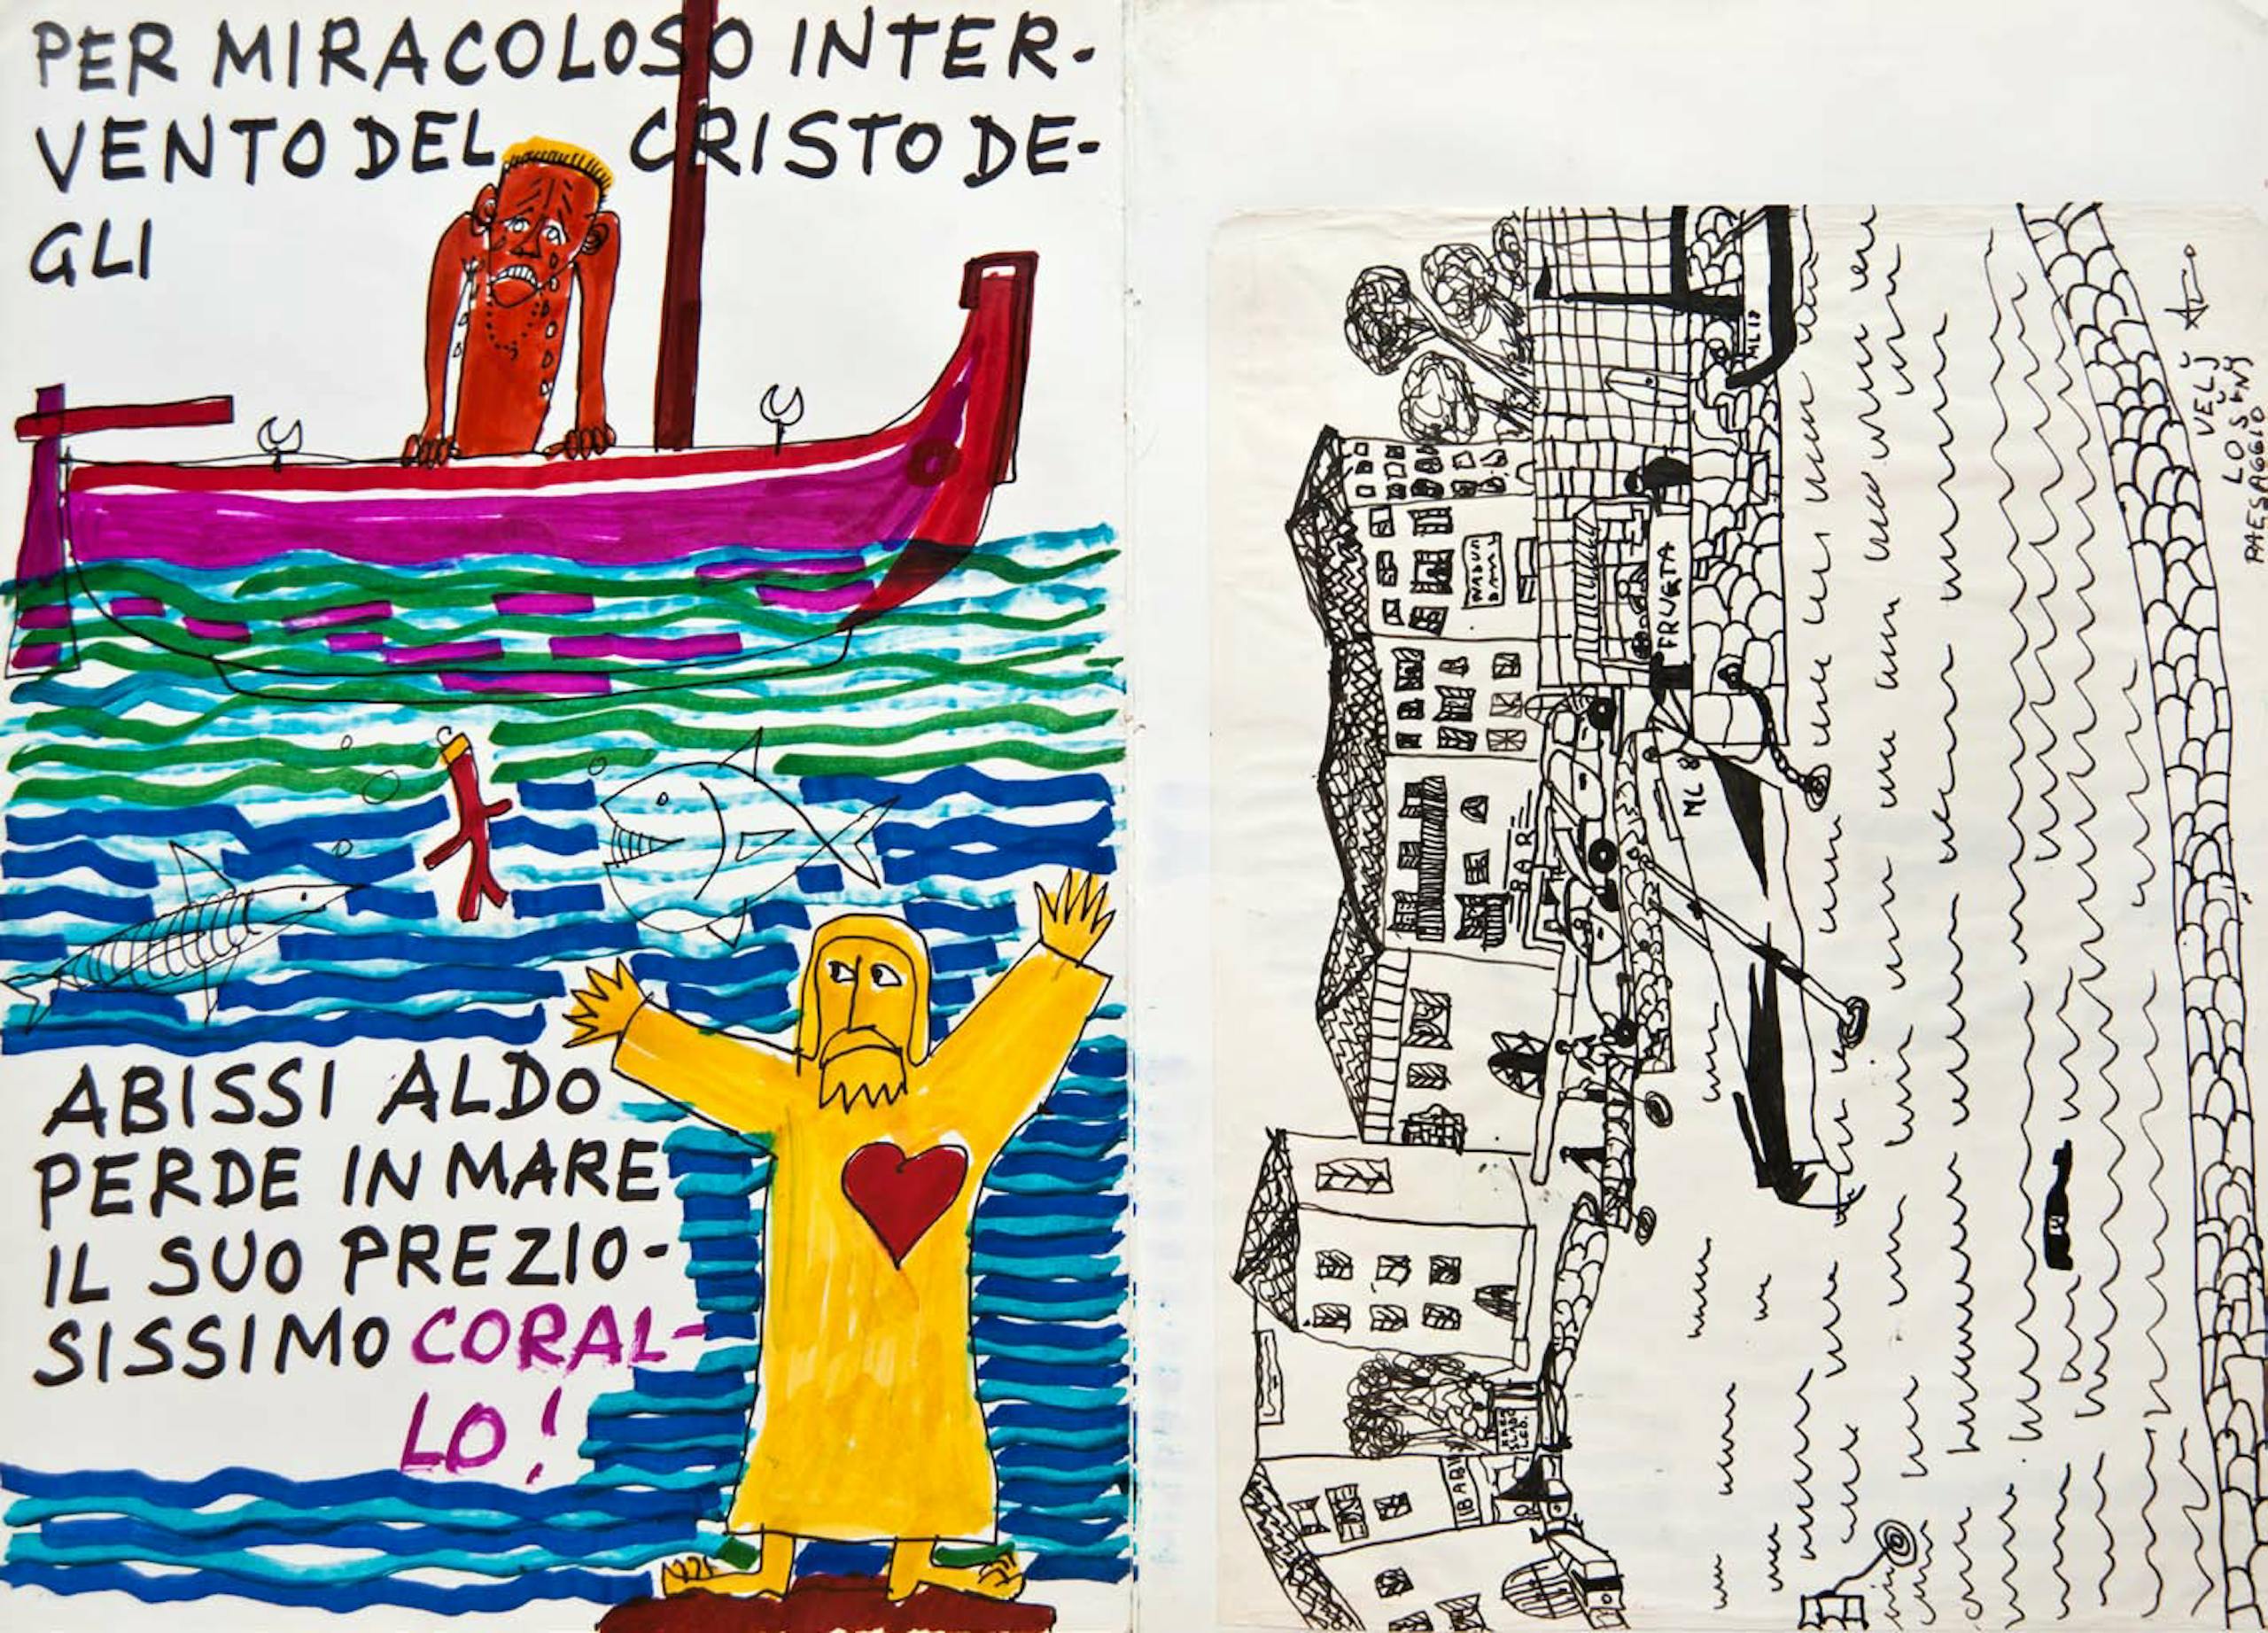 PER MIRACOLOSO INTER-
VENTO DEL CRISTO DE-
GLI
ABISSI ALDO
PERDE IN MARE
IL SUO PREZIO-
SISSIMO CORAL-
LO!
ML 12
FRUGTA
ML 8
BAR
PAESAGGIO
LOŠYNY
VELJ